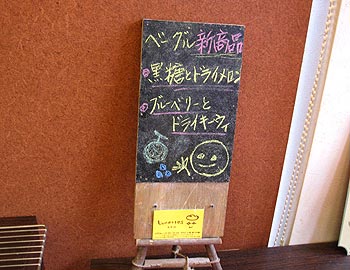 ベーグル新商品
黒糖とドライメロン
ブルーベリーと
ドライキーウィ